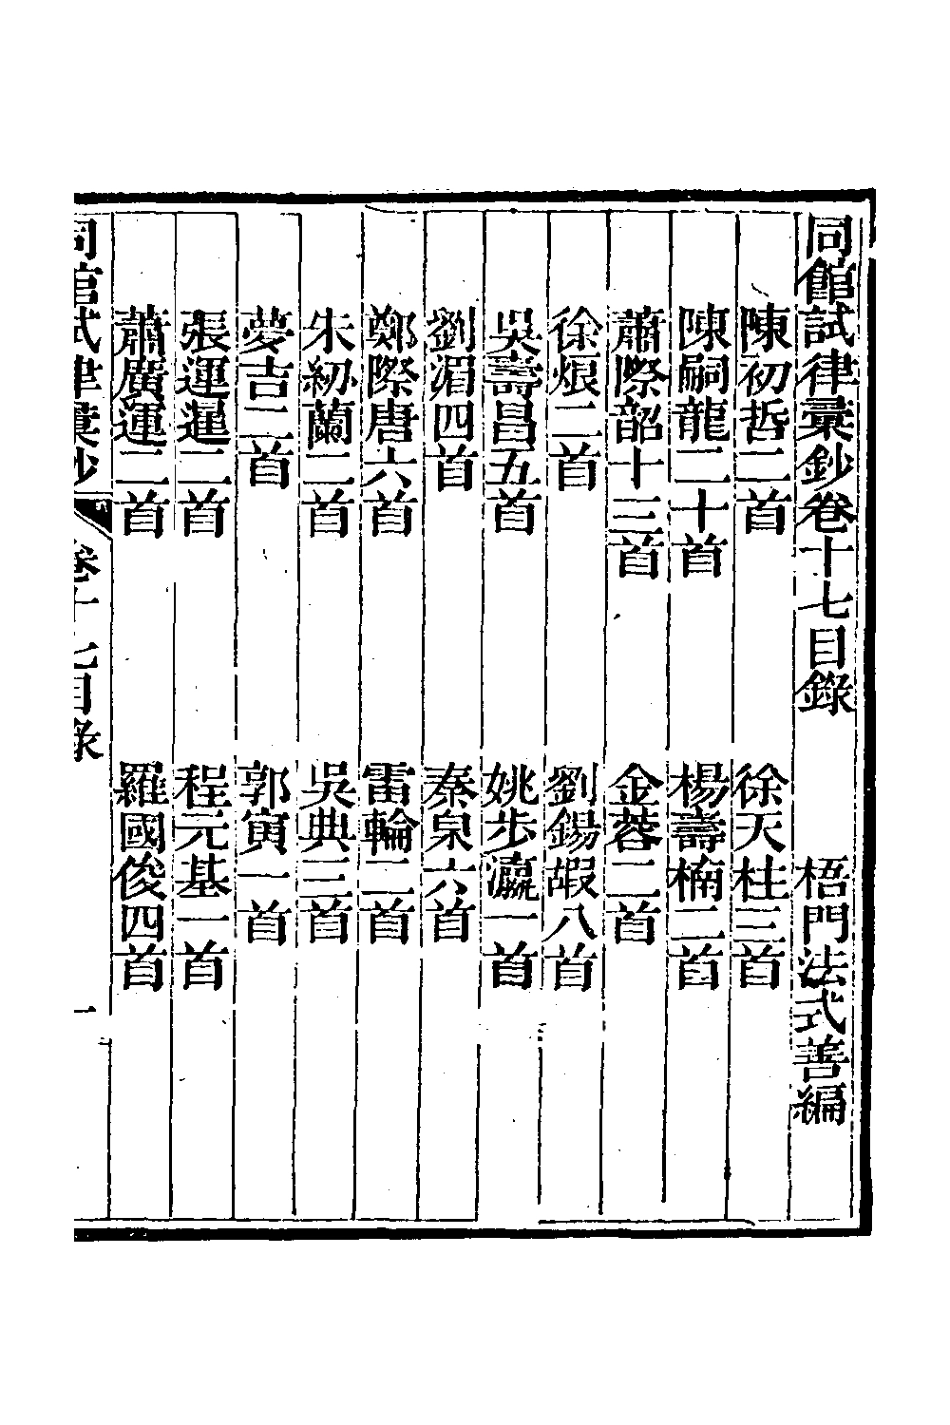 同館試律彙鈔卷十七目錄 梧門法式善編
陳初哲二首 徐天柱三首
陳嗣龍二十首 楊壽楠二首
蕭際韶十三首 金蓉二首
徐烺二首 劉錫嘏八首
吳壽昌五首 姚步瀛一首
劉湄四首 秦泉六首
鄭際唐六首 雷輪二首
朱紉蘭二首 吳典三首
夢吉二首 郭寅一首
張運暹二首 程元基一首
蕭廣運二首 羅國俊四首
同館試律彙鈔 卷十七目錄 一